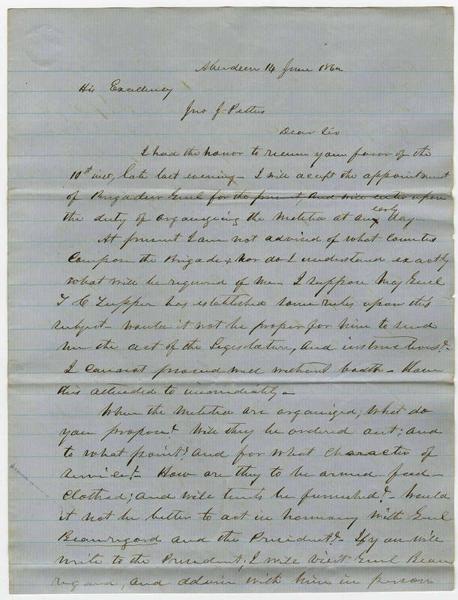 Aberdeen 14 June 1862
His Excellency
Jno J. Pettus
Dear Sir
I had the honor to receive your favor of the
10th inst, late last evening - I will accept the appointment
of Brigadier Genl for the present, and will enter upon
the duty of organizing the Militia at an early day
At present I am not advised of what Counties
Compose the Brigade; Nor do I understand exactly
what will be required of me. I suppose Maj Genl
T. C. Tupper has established some rules upon this
subject - would it not be proper for him to send
me the act of the Legislature, and instructions?
I cannot proceed well without both - Have
this attended to immediately -
When the Militia are organized; What do
you propose? Will they be ordered out; and
to what point? and for what character of
service? - How are they to be armed feed -
Clothed; and will tents be furnished? - Would
it not be better to act in harmony with Genl
Beauregard and the President? If you will
write to the President; I will visit Genl Beau
regard, and advise with him in person